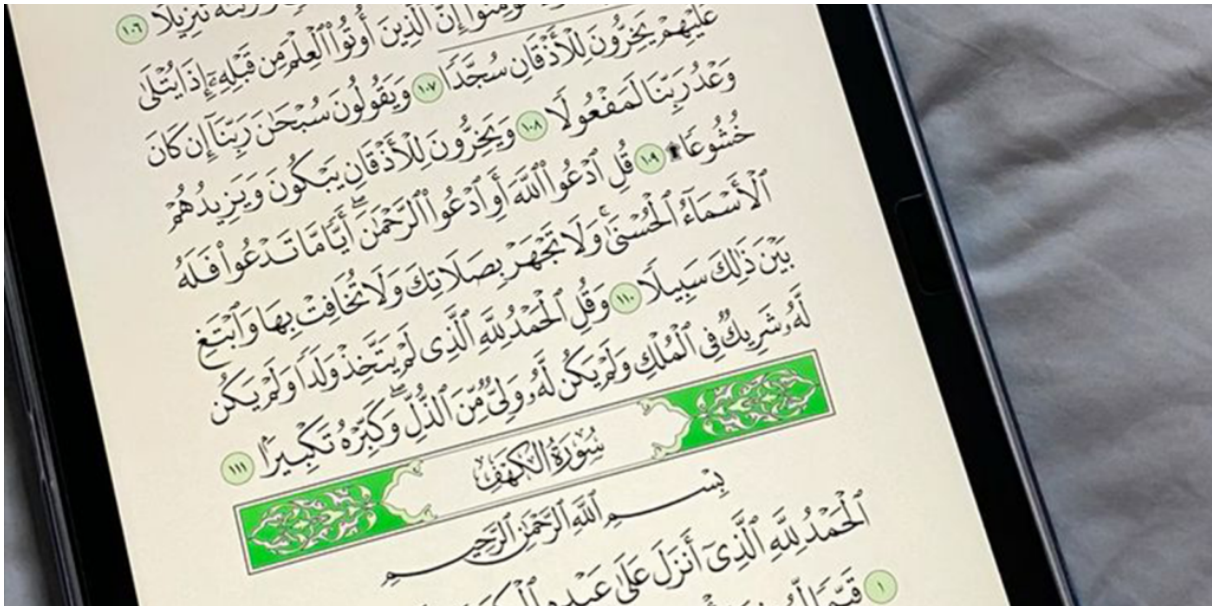 تَنزِيلًا ١٠٦
إِنَّ ٱلَّذِينَ أُوتُوا۟ ٱلْعِلْمَ مِن قَبْلِهِۦٓ إِذَا يُتْلَىٰ
عَلَيْهِمْ يَخِرُّونَ لِلْأَذْقَانِ سُجَّدًا ١٠٧ وَيَقُولُونَ سُبْحَٰنَ رَبِّنَآ إِن كَانَ
وَعْدُ رَبِّنَا لَمَفْعُولًا ١٠٨ وَيَخِرُّونَ لِلْأَذْقَانِ يَبْكُونَ وَيَزِيدُهُمْ
خُشُوعًا ۩ ١٠٩ قُلِ ٱدْعُوا۟ ٱللَّهَ أَوِ ٱدْعُوا۟ ٱلرَّحْمَٰنَ ۖ أَيًّا مَّا تَدْعُوا۟ فَلَهُ
ٱلْأَسْمَآءُ ٱلْحُسْنَىٰ ۚ وَلَا تَجْهَرْ بِصَلَاتِكَ وَلَا تُخَافِتْ بِهَا وَٱبْتَغِ
بَيْنَ ذَٰلِكَ سَبِيلًا ١١٠ وَقُلِ ٱلْحَمْدُ لِلَّهِ ٱلَّذِى لَمْ يَتَّخِذْ وَلَدًا وَلَمْ يَكُن
لَّهُۥ شَرِيكٌ فِى ٱلْمُلْكِ وَلَمْ يَكُن لَّهُۥ وَلِىٌّ مِّنَ ٱلذُّلِّ ۖ وَكَبِّرْهُ تَكْبِيرًۢا ١١١
سُورَةُ الكَهْفِ
بِسْمِ ٱللَّهِ ٱلرَّحْمَٰنِ ٱلرَّحِيمِ
ٱلْحَمْدُ لِلَّهِ ٱلَّذِىٓ أَنزَلَ عَلَىٰ عَبْدِهِ
١ قَيِّمًا